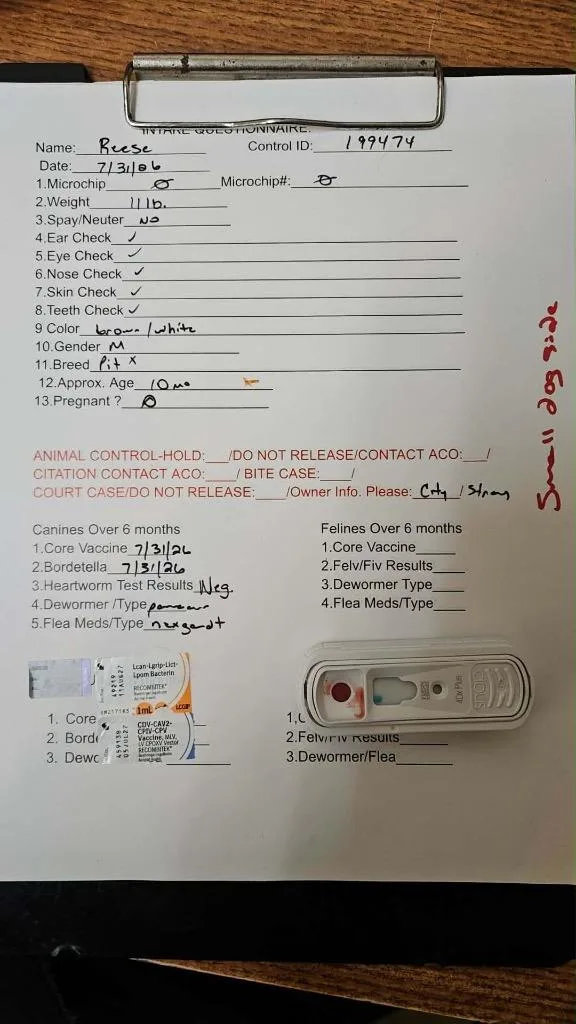 INTAKE QUESTIONNAIRE:
Name: Reese Control ID: 199474
Date: 7/31/26
1.Microchip Ø Microchip#: Ø
2.Weight 11 lb.
3.Spay/Neuter No
4.Ear Check ✓
5.Eye Check ✓
6.Nose Check ✓
7.Skin Check ✓
8.Teeth Check ✓
9 Color brown/white
10.Gender M
11.Breed Pit x
12.Approx. Age 10 mo
13.Pregnant ? Ø
Small dog side
ANIMAL CONTROL-HOLD:___/DO NOT RELEASE/CONTACT ACO:___/
CITATION CONTACT ACO:____/ BITE CASE:____/
COURT CASE/DO NOT RELEASE:____/Owner Info. Please: City / Stray
Canines Over 6 months
1.Core Vaccine 7/31/26
2.Bordetella 7/31/26
3.Heartworm Test Results Neg.
4.Dewormer /Type
5.Flea Meds/Type nexgardt
Felines Over 6 months
1.Core Vaccine_____
2.Felv/Fiv Results____
3.Dewormer Type____
4.Flea Meds/Type____
Lcan-Lgrip-Lict-
Lpom Bacterin
RECOMBITEK®
1mL LCGIP
49219
11AUG27
CDV-CAV2-
CPIV-CPV
Vaccine, MLV,
LV CPOXV Vector
RECOMBITEK®
459138
05JUL27
1. Core
2. Borde
3. Dewo
SNAP
4Dx Plus
IDEXX
1.C
2.Felv/Fiv Results
3.Dewormer/Flea